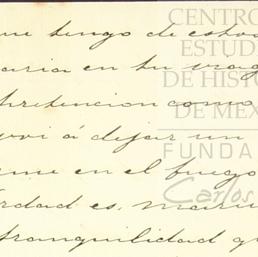 me tengo de estos
aria en tu viag
pretencion como
vi á dejar un
me en el fuego
dad es, maru
tranquilidad q
CENTRO
ESTUD
DE HISTO
DE MEX
FUNDA
Carlos